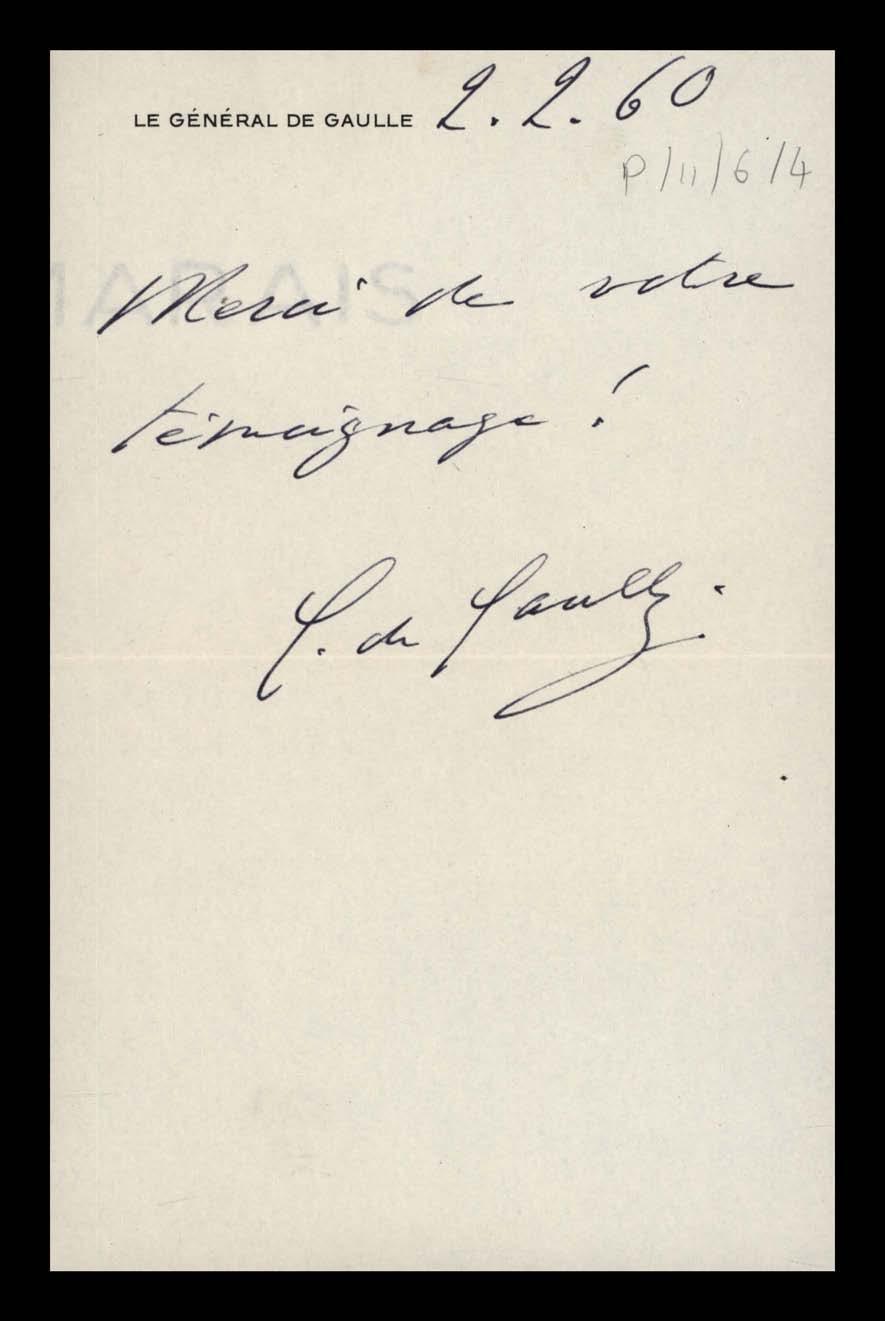 LE GÉNÉRAL DE GAULLE 2.2.60
P/11/6/4
MARAIS
Merci de votre
témoignage !
C. de Gaulle.